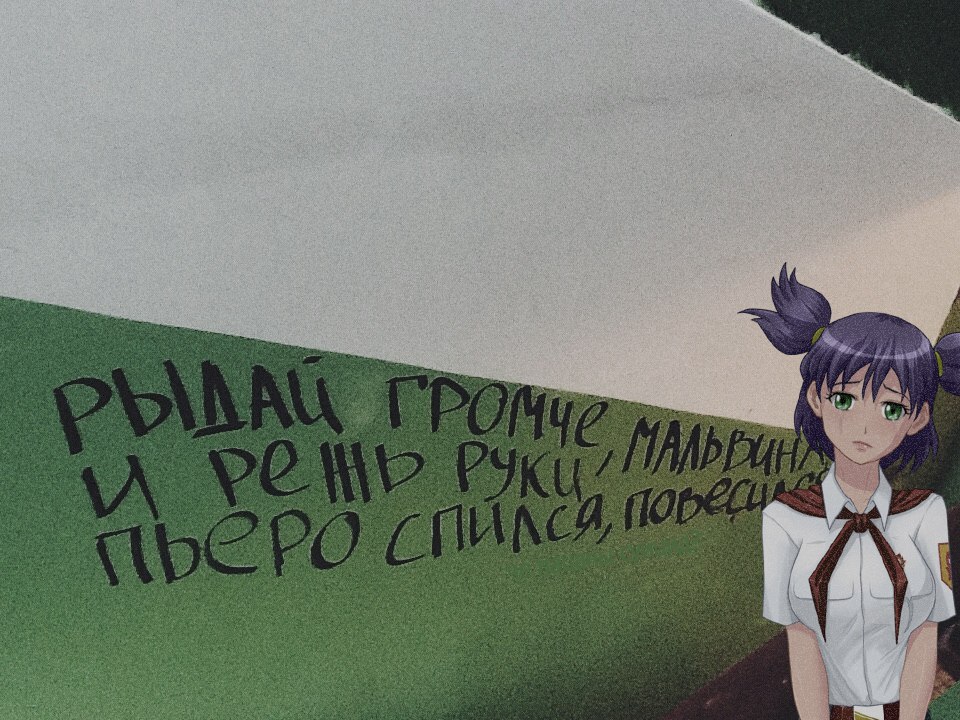 РЫДАЙ ГРОМЧЕ
И РЕЖЬ РУКИ, МАЛЬВИНА
ПЬЕРО СПИЛСЯ, ПОВЕСИЛСЯ